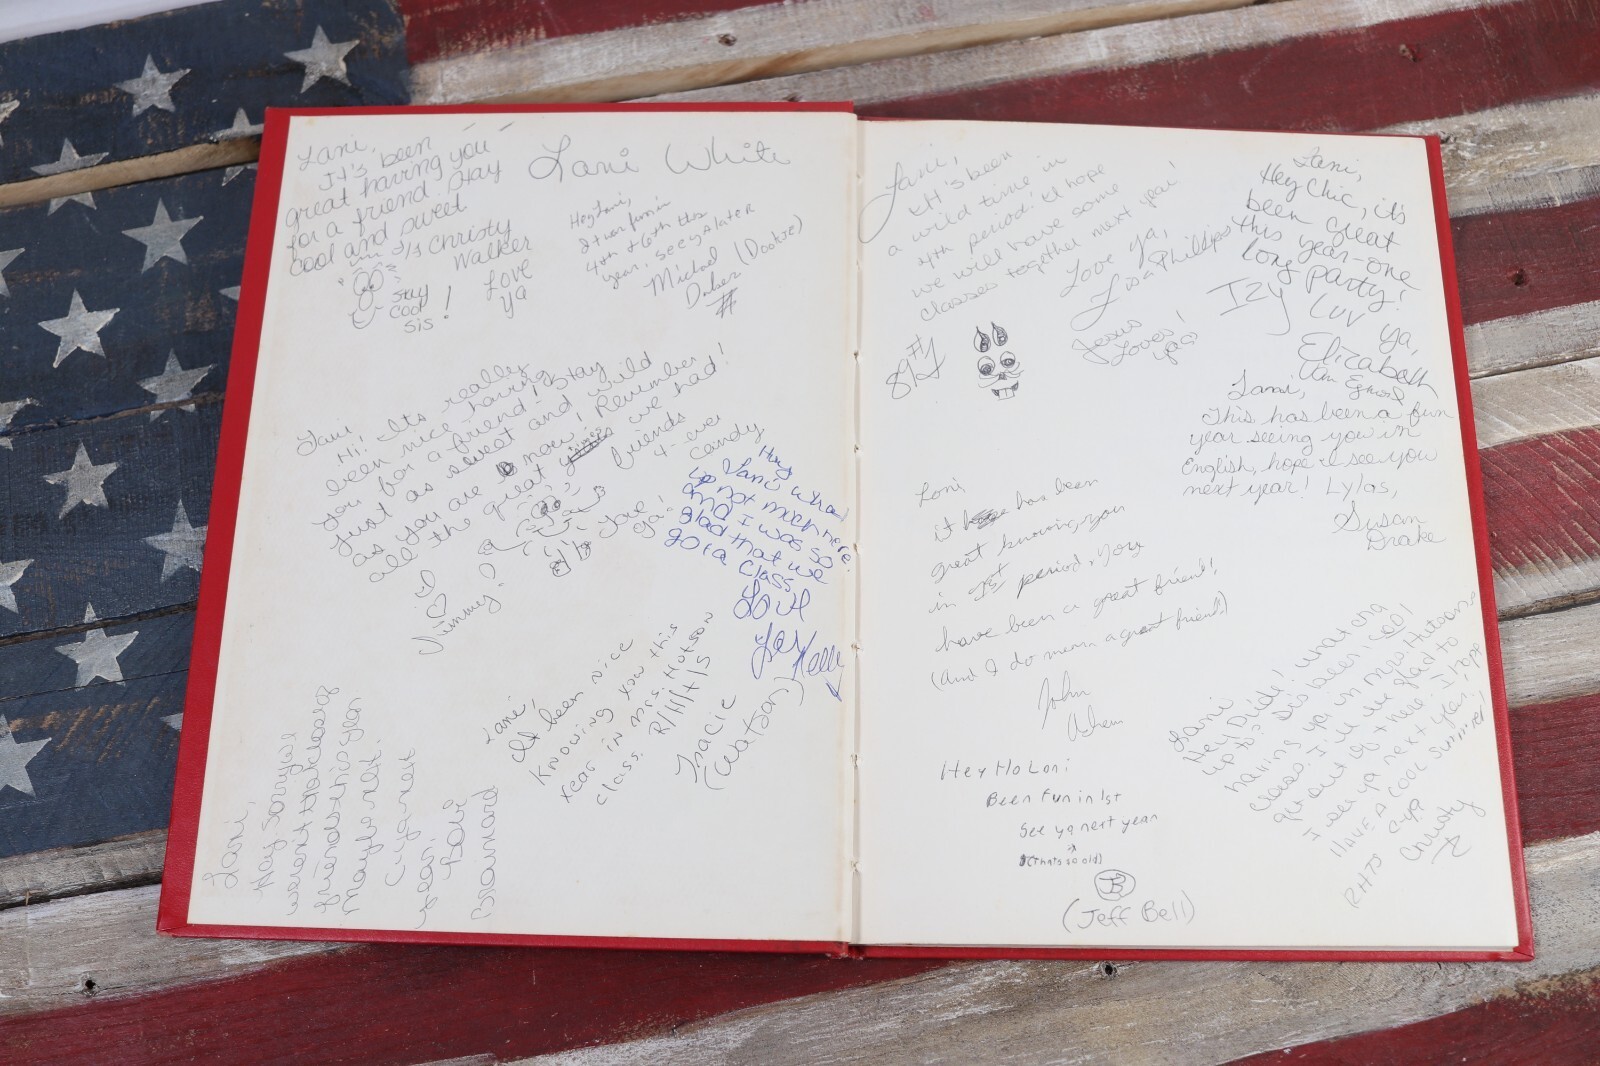 Lani,
It's been
great having you
for a friend. Stay
cool and sweet
Christy
Walker
Love
ya
Stay
cool
sis!
Lani White
Hey Lani,
It was fun in
4th & 6th this
year, see ya later
Michael
(Dookie)
#
Lani
Hi! Its really
been nice having
you for a friend! Stay
just as sweet and wild
as you are now! Remember
all the great times we had!
friends
4-ever
candy
Love
ya!
Jimmy
Hey
Lani what
up not much here
and I was so
glad that we
got a class
Love
Kelly
Lani,
It been nice
knowing you this
year in Mrs. Hutson
class. R/H/T/S
Tracie
(Watson)
Lani,
Hey sorry we
weren't that close of
friends this year
maybe next.
C-ya next
year.
Brainard
Lani,
It's been
a wild time in
4th period. I'd hope
we will have some
classes together next year!
Love ya,
Lisa Phillips
Jesus
Loves!
ya
#1
89
Lani,
Hey Chic, it's
been great
this year-one
long party!
Izy
Luv ya,
Elizabeth
Van Egmond
Lani,
This has been a fun
year seeing you in
English, hope I see you
next year! Lylas,
Susan
Drake
Loni
it has been
great knowing you
in 1st period, you
have been a great friend!
(And I do mean a great friend)
John
Hey Ho Loni
Been fun in 1st
See ya next year
(thats so old)
JB
(Jeff Bell)
Lani
Hey Dude! What cha
up to? It's been cool
having ya in Mrs. Hutsons
class. I'll be glad to
get out of here. I hope
I see ya next year!
Have a cool summer!
RHTS
C-ya
Christy